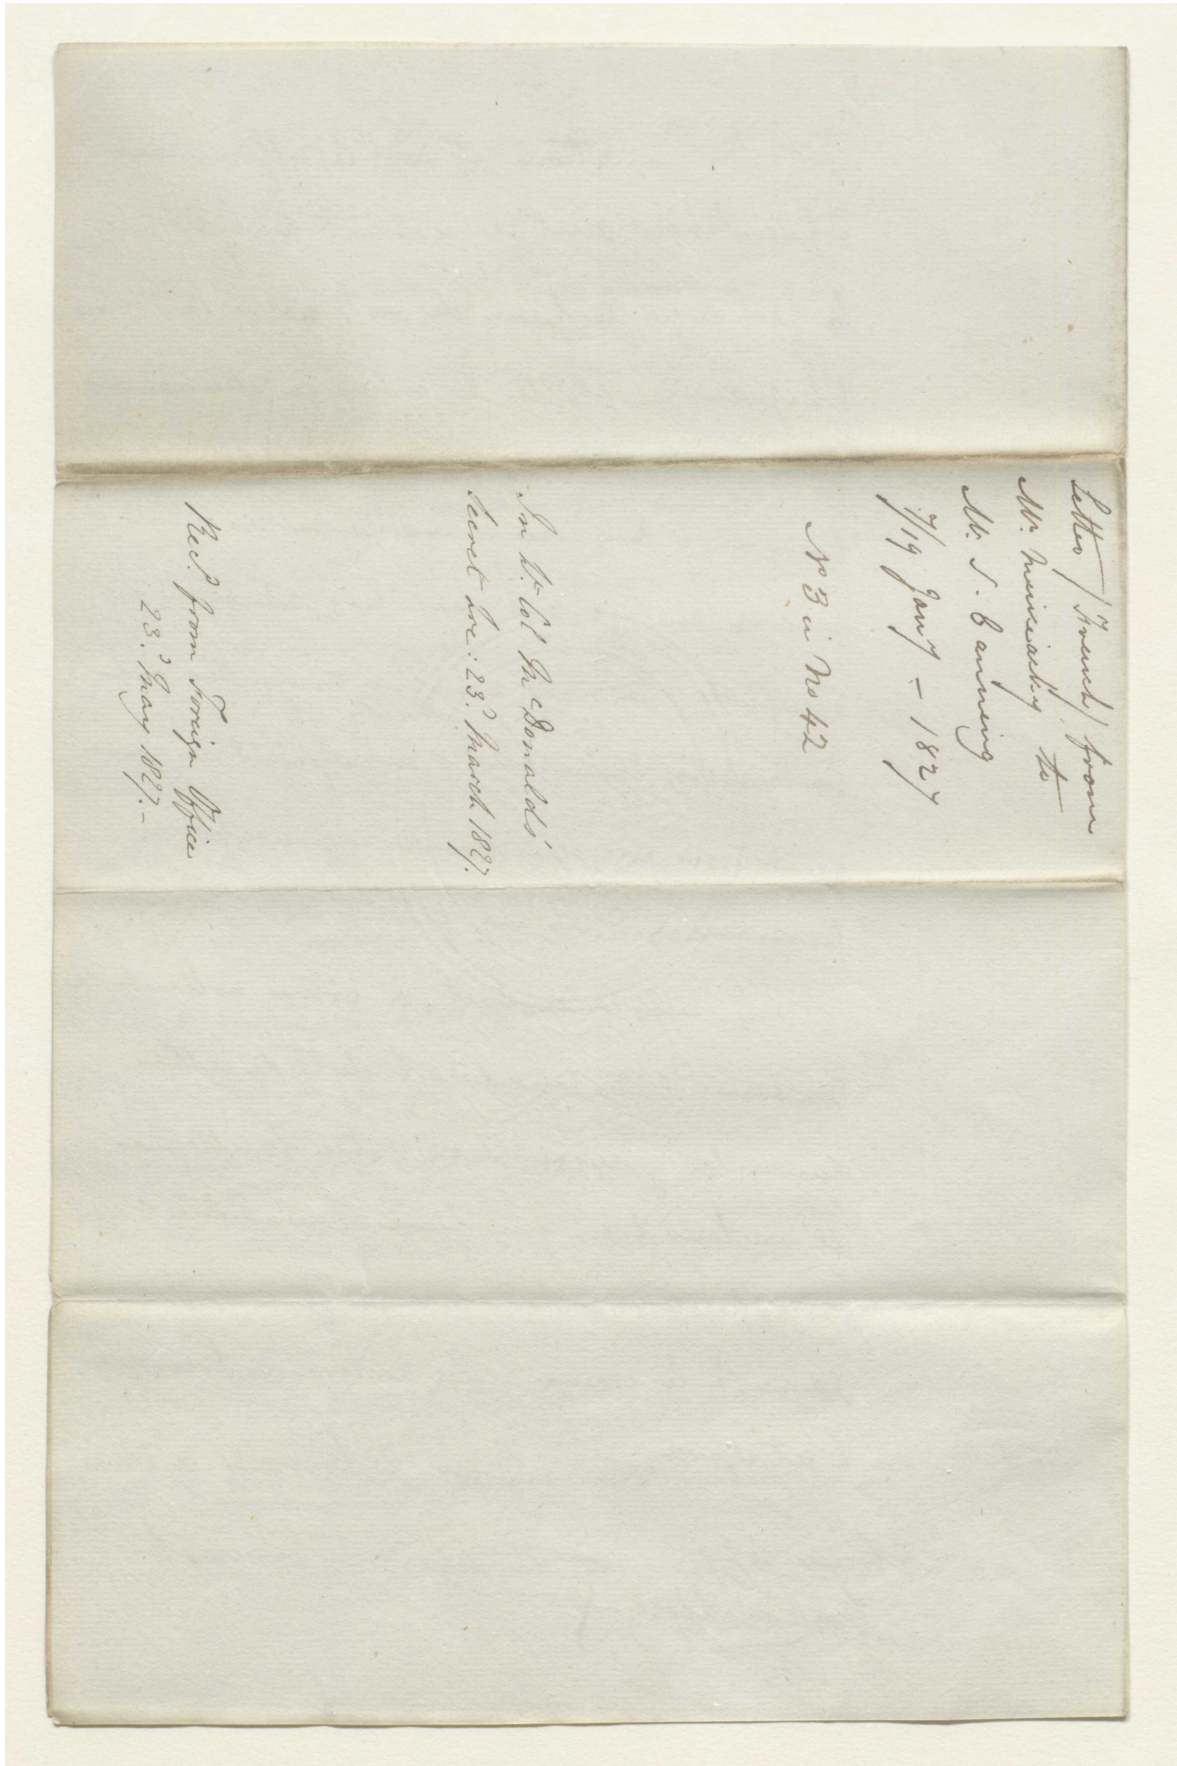 Letter / French / from
Mr. Minciaky to
Mr. S. Canning
7/19 Jany - 1827
No 3 in No 42
In Lt. Col McDonald's
Secret Let: 23d. March 1827.
Recd. from Foreign Office
23d. May 1827.-